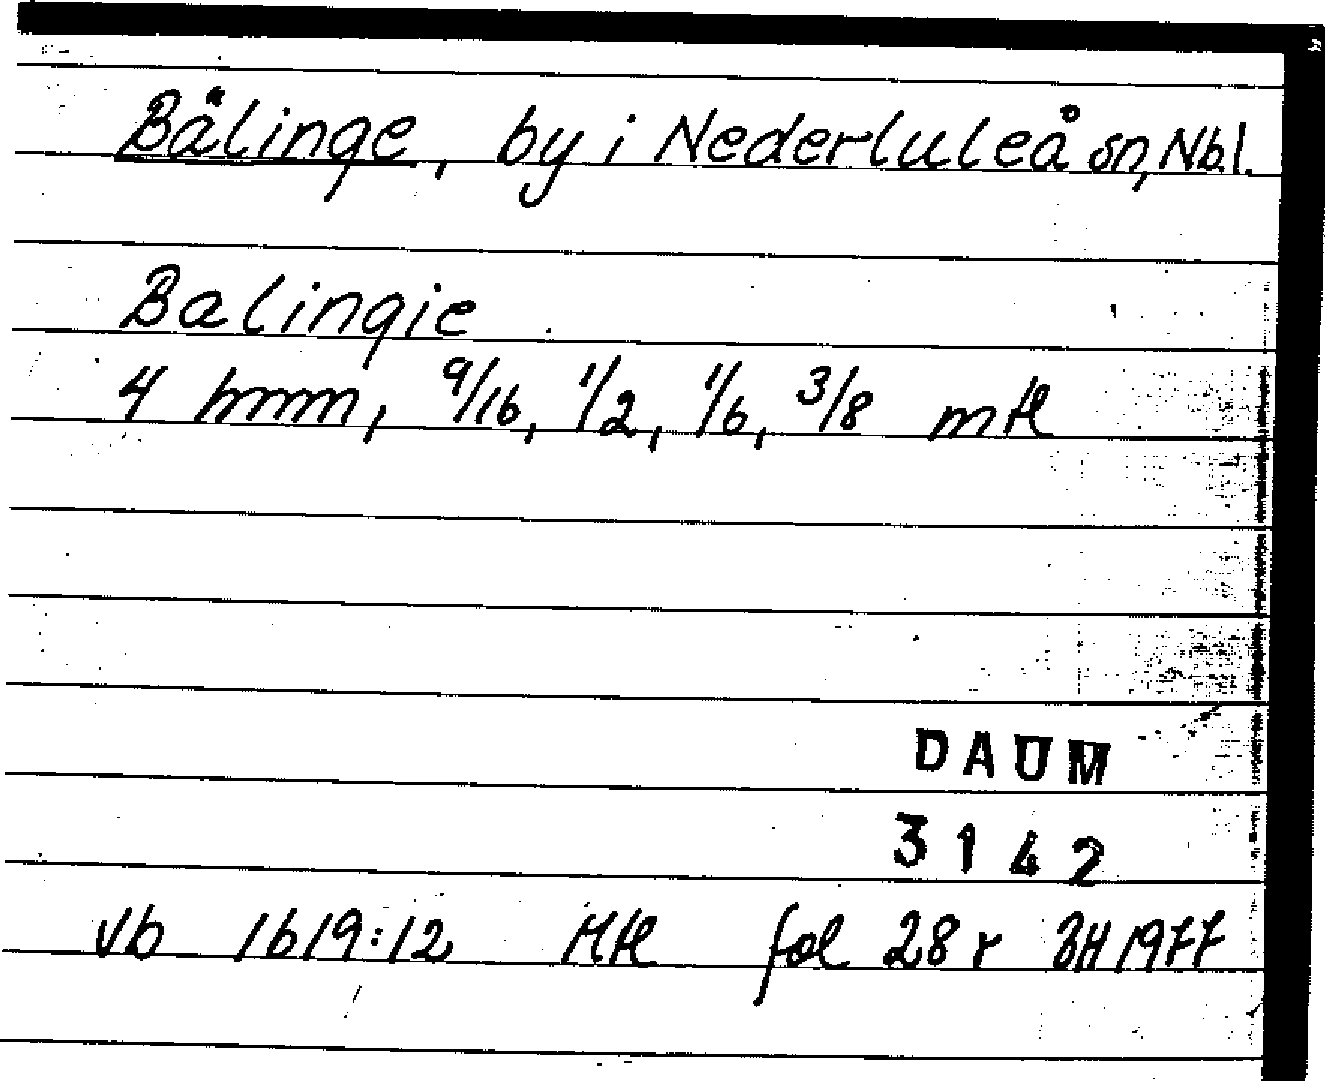 Bälinge, by i Nederluleå sn, Nbl.
Balingie
4 hmm, 9/16, 1/2, 1/6, 3/8 mtl
DAUM
3142
Vb 1619:12 Mtl fol 28 r BH 1977